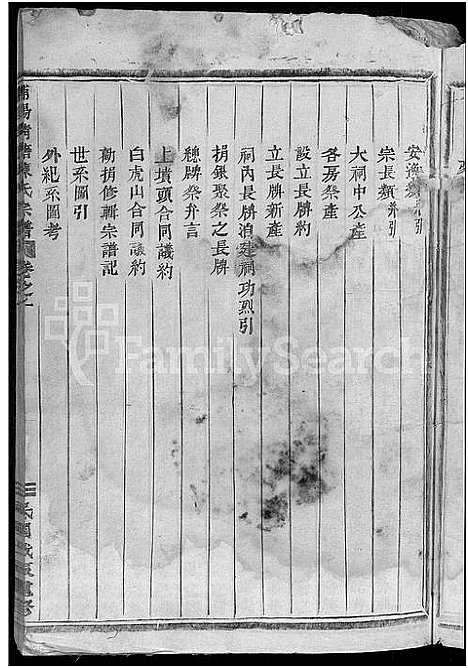 安豫類并引
宗長類并引
大祠中公產
各房祭產
設立長牌約
立長牌新產
祠內長牌追建祠功烈引
捐銀聚祭之長牌
總牌祭弁言
上墳頭合同議約
白虎山合同議約
勸捐修輯宗譜記
世系圖引
外紀系圖考
氏宗譜
FamilySearch